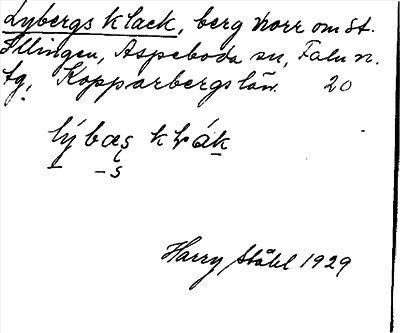 Lybergs klack, berg norr om St.
Illingen, Aspeboda sn, Falu n.
tg, Kopparbergs län. 20
Harry Ståhl 1929